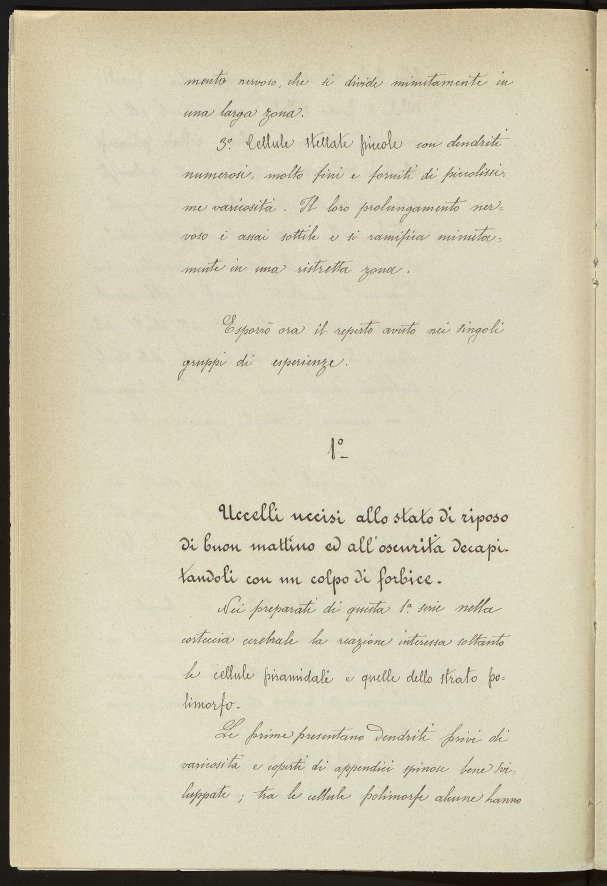 mento nervoso, che si divide minutamente in
una larga zona.
3º. Cellule stellate piccole con dendriti
numerosi, molto fini e forniti di piccolissi-
me varicosità. Il loro prolungamento ner-
voso è assai sottile e si ramifica minuta-
mente in una ristretta zona.
Esporrò ora il reperto avuto nei singoli
gruppi di esperienze.
1º
Uccelli uccisi allo stato di riposo
di buon mattino ed all'oscurità decapi-
tandoli con un colpo di forbice.
Nei preparati di questa 1ª serie nella
corteccia cerebrale la reazione interessa soltanto
le cellule piramidali e quelle dello strato po=
limorfo.
Le prime presentano dendriti privi di
varicosità e coperti di appendici spinose bene svi-
luppate; tra le cellule polimorfe alcune hanno